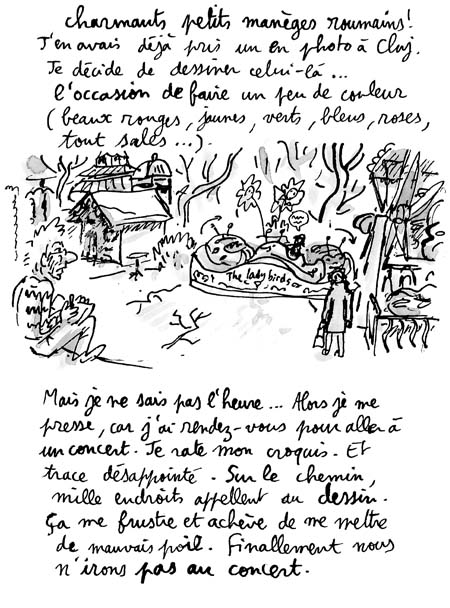 charmants petits manèges roumains!
J'en avais déjà pris un en photo à Cluj.
Je décide de dessiner celui-là...
l'occasion de faire un peu de couleur
(beaux rouges, jaunes, verts, bleus, roses,
tout sales...).
The lady birds
Mais je ne sais pas l'heure... Alors je me
presse, car j'ai rendez-vous pour aller à
un concert. Je rate mon croquis. Et
trace désappointé. Sur le chemin,
mille endroits appellent au dessin.
Ça me frustre et achève de me mettre
de mauvais poil. Finallement nous
n'irons pas au concert.